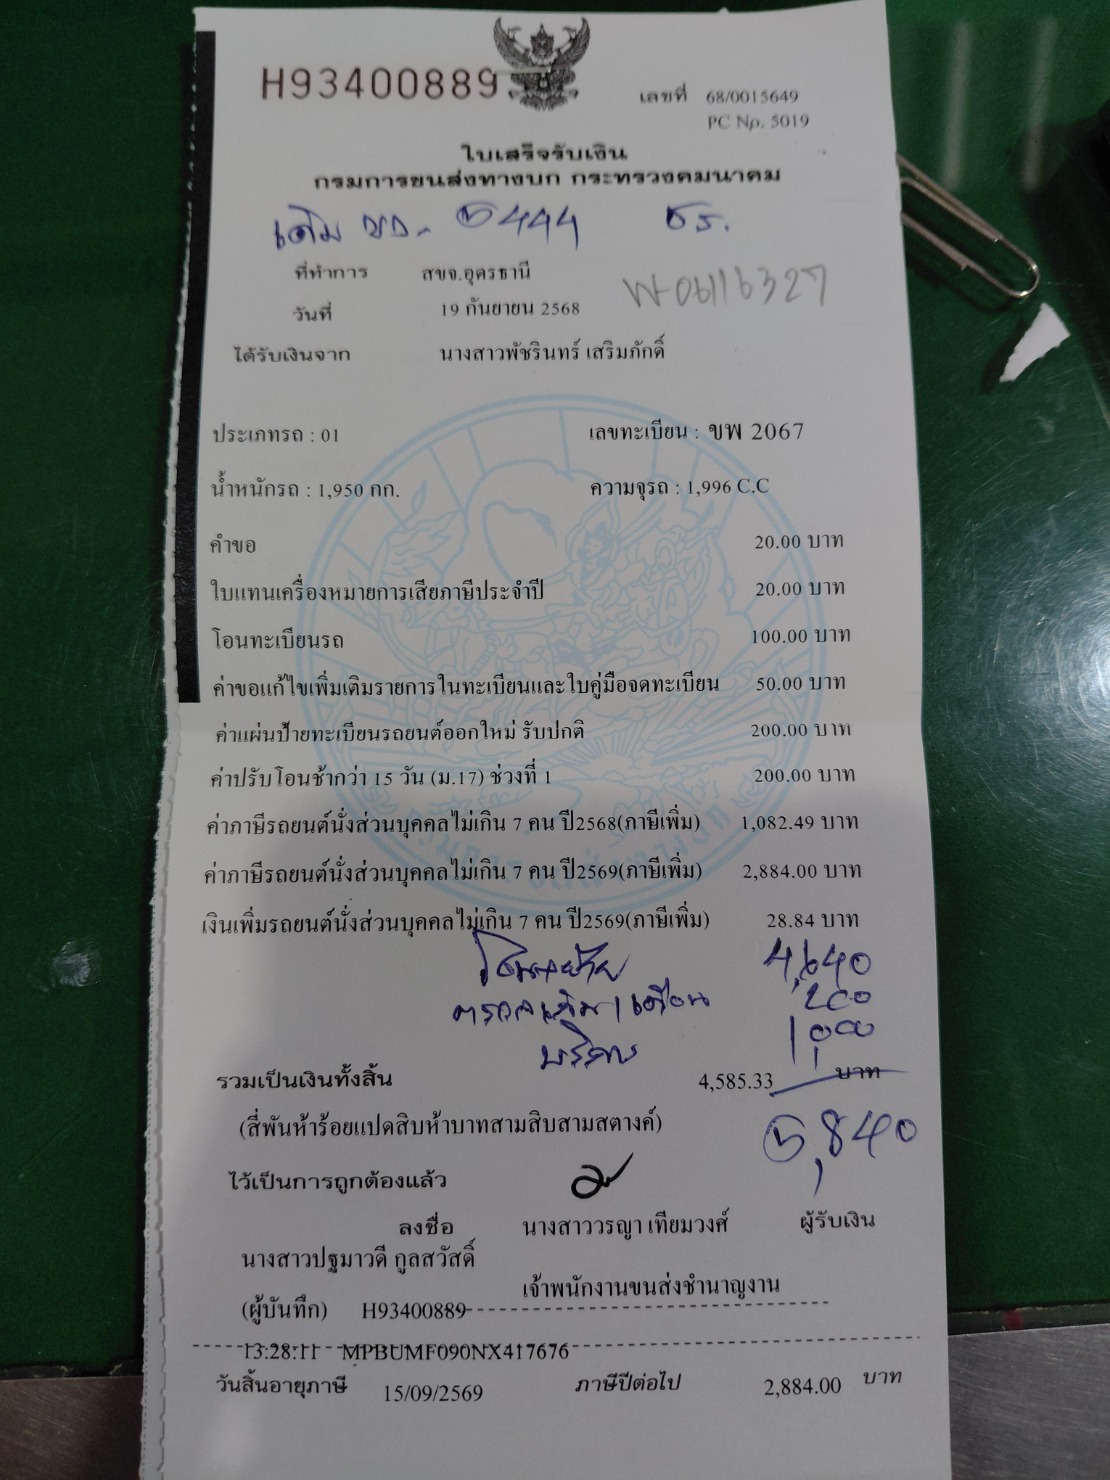 H93400889
เลขที่ 68/0015649
PC No. 5019
ใบเสร็จรับเงิน
กรมการขนส่งทางบก กระทรวงคมนาคม
เดิม 5444 ชร.
ที่ทำการ สขจ.อุดรธานี
W06116327
วันที่ 19 กันยายน 2568
ได้รับเงินจาก นางสาวพัชรินทร์ เสริมภักดิ์
ประเภทรถ : 01 เลขทะเบียน : ขพ 2067
น้ำหนักรถ : 1,950 กก. ความจุรถ : 1,996 C.C
คำขอ 20.00 บาท
ใบแทนเครื่องหมายการเสียภาษีประจำปี 20.00 บาท
โอนทะเบียนรถ 100.00 บาท
ค่าขอแก้ไขเพิ่มเติมรายการในทะเบียนและใบคู่มือจดทะเบียน 50.00 บาท
ค่าแผ่นป้ายทะเบียนรถยนต์ออกใหม่ รับปกติ 200.00 บาท
ค่าปรับโอนช้ากว่า 15 วัน (ม.17) ช่วงที่ 1 200.00 บาท
ค่าภาษีรถยนต์นั่งส่วนบุคคลไม่เกิน 7 คน ปี2568(ภาษีเพิ่ม) 1,082.49 บาท
ค่าภาษีรถยนต์นั่งส่วนบุคคลไม่เกิน 7 คน ปี2569(ภาษีเพิ่ม) 2,884.00 บาท
เงินเพิ่มรถยนต์นั่งส่วนบุคคลไม่เกิน 7 คน ปี2569(ภาษีเพิ่ม) 28.84 บาท
4,640
200
บริการ 1,000
รวมเป็นเงินทั้งสิ้น 4,585.33 บาท
(สี่พันห้าร้อยแปดสิบห้าบาทสามสิบสามสตางค์)
5,840
ไว้เป็นการถูกต้องแล้ว
ลงชื่อ นางสาววรญา เทียมวงศ์ ผู้รับเงิน
นางสาวปฐมาวดี กูลสวัสดิ์
เจ้าพนักงานขนส่งชำนาญงาน
(ผู้บันทึก) H93400889
13:28:11 MPBUMF090NX417676
วันสิ้นอายุภาษี 15/09/2569 ภาษีปีต่อไป 2,884.00 บาท